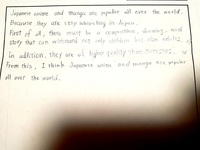 Japanese anime and manga are popular all over the world.
Because they are very interesting in Japan.
First of all, there must be a competition, drawing, and
story that can withstand not only children but also adults.
In addition, they are of higher quality than
From this, I think Japanese anime and manga are popular
all over the world.